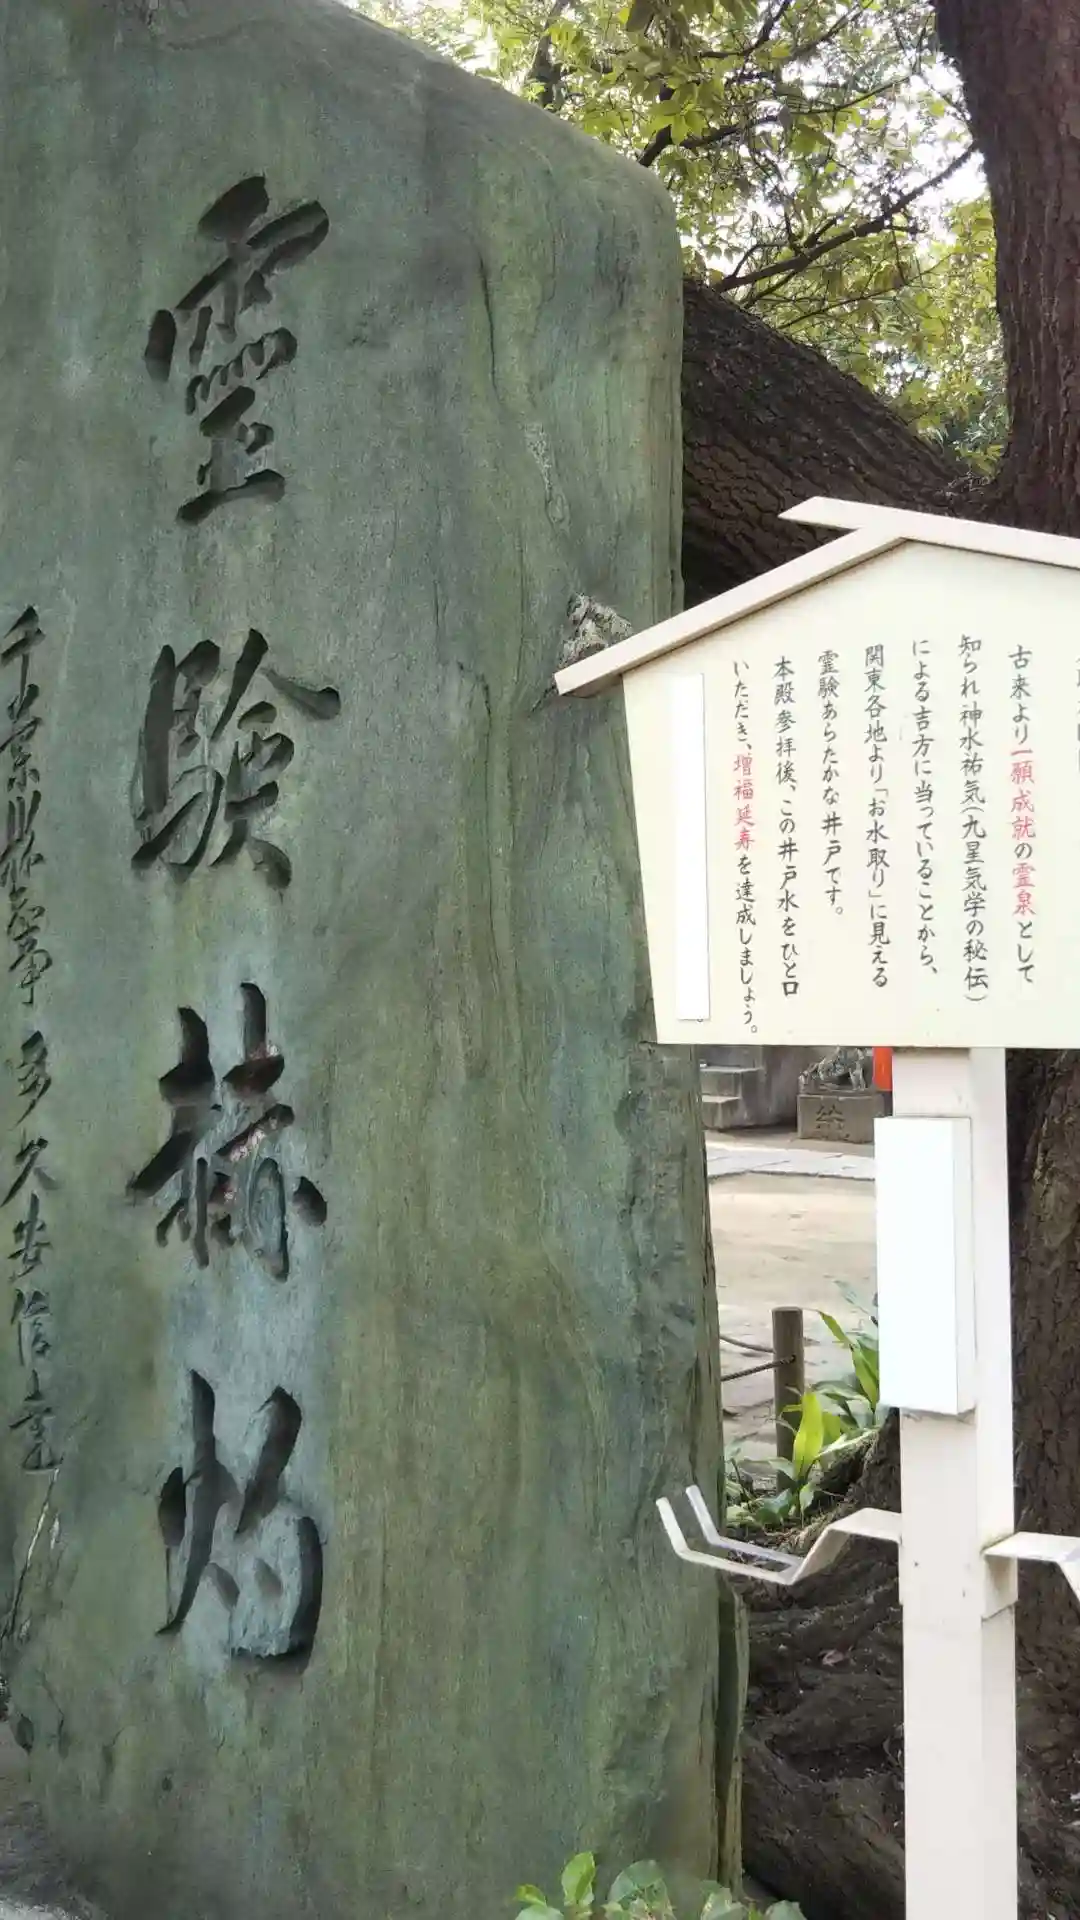 靈驗赫灼
千葉縣知事 多久安信書
古来より一願成就の霊泉として
知られ神水祐気(九星気学の秘伝)
による吉方に当っていることから、
関東各地より「お水取り」に見える
霊験あらたかな井戸です。
本殿参拝後、この井戸水をひと口
いただき、増福延寿を達成しましょう。